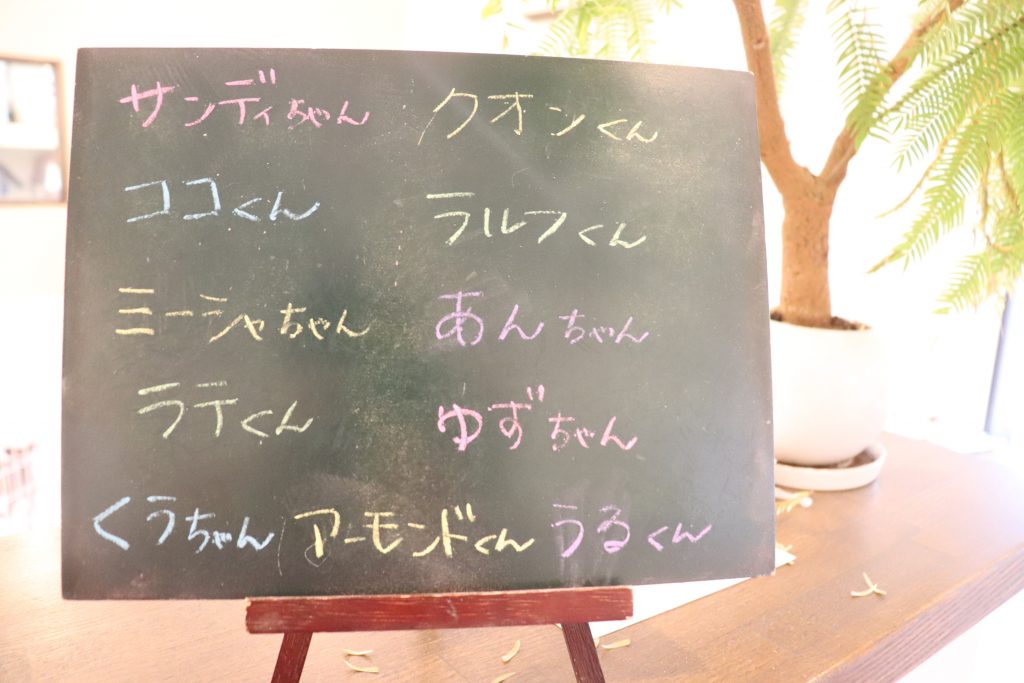 サンディちゃん クオンくん
ココくん ラルフくん
ミーシャちゃん あんちゃん
ラテくん ゆずちゃん
くうちゃん アーモンドくん うるくん